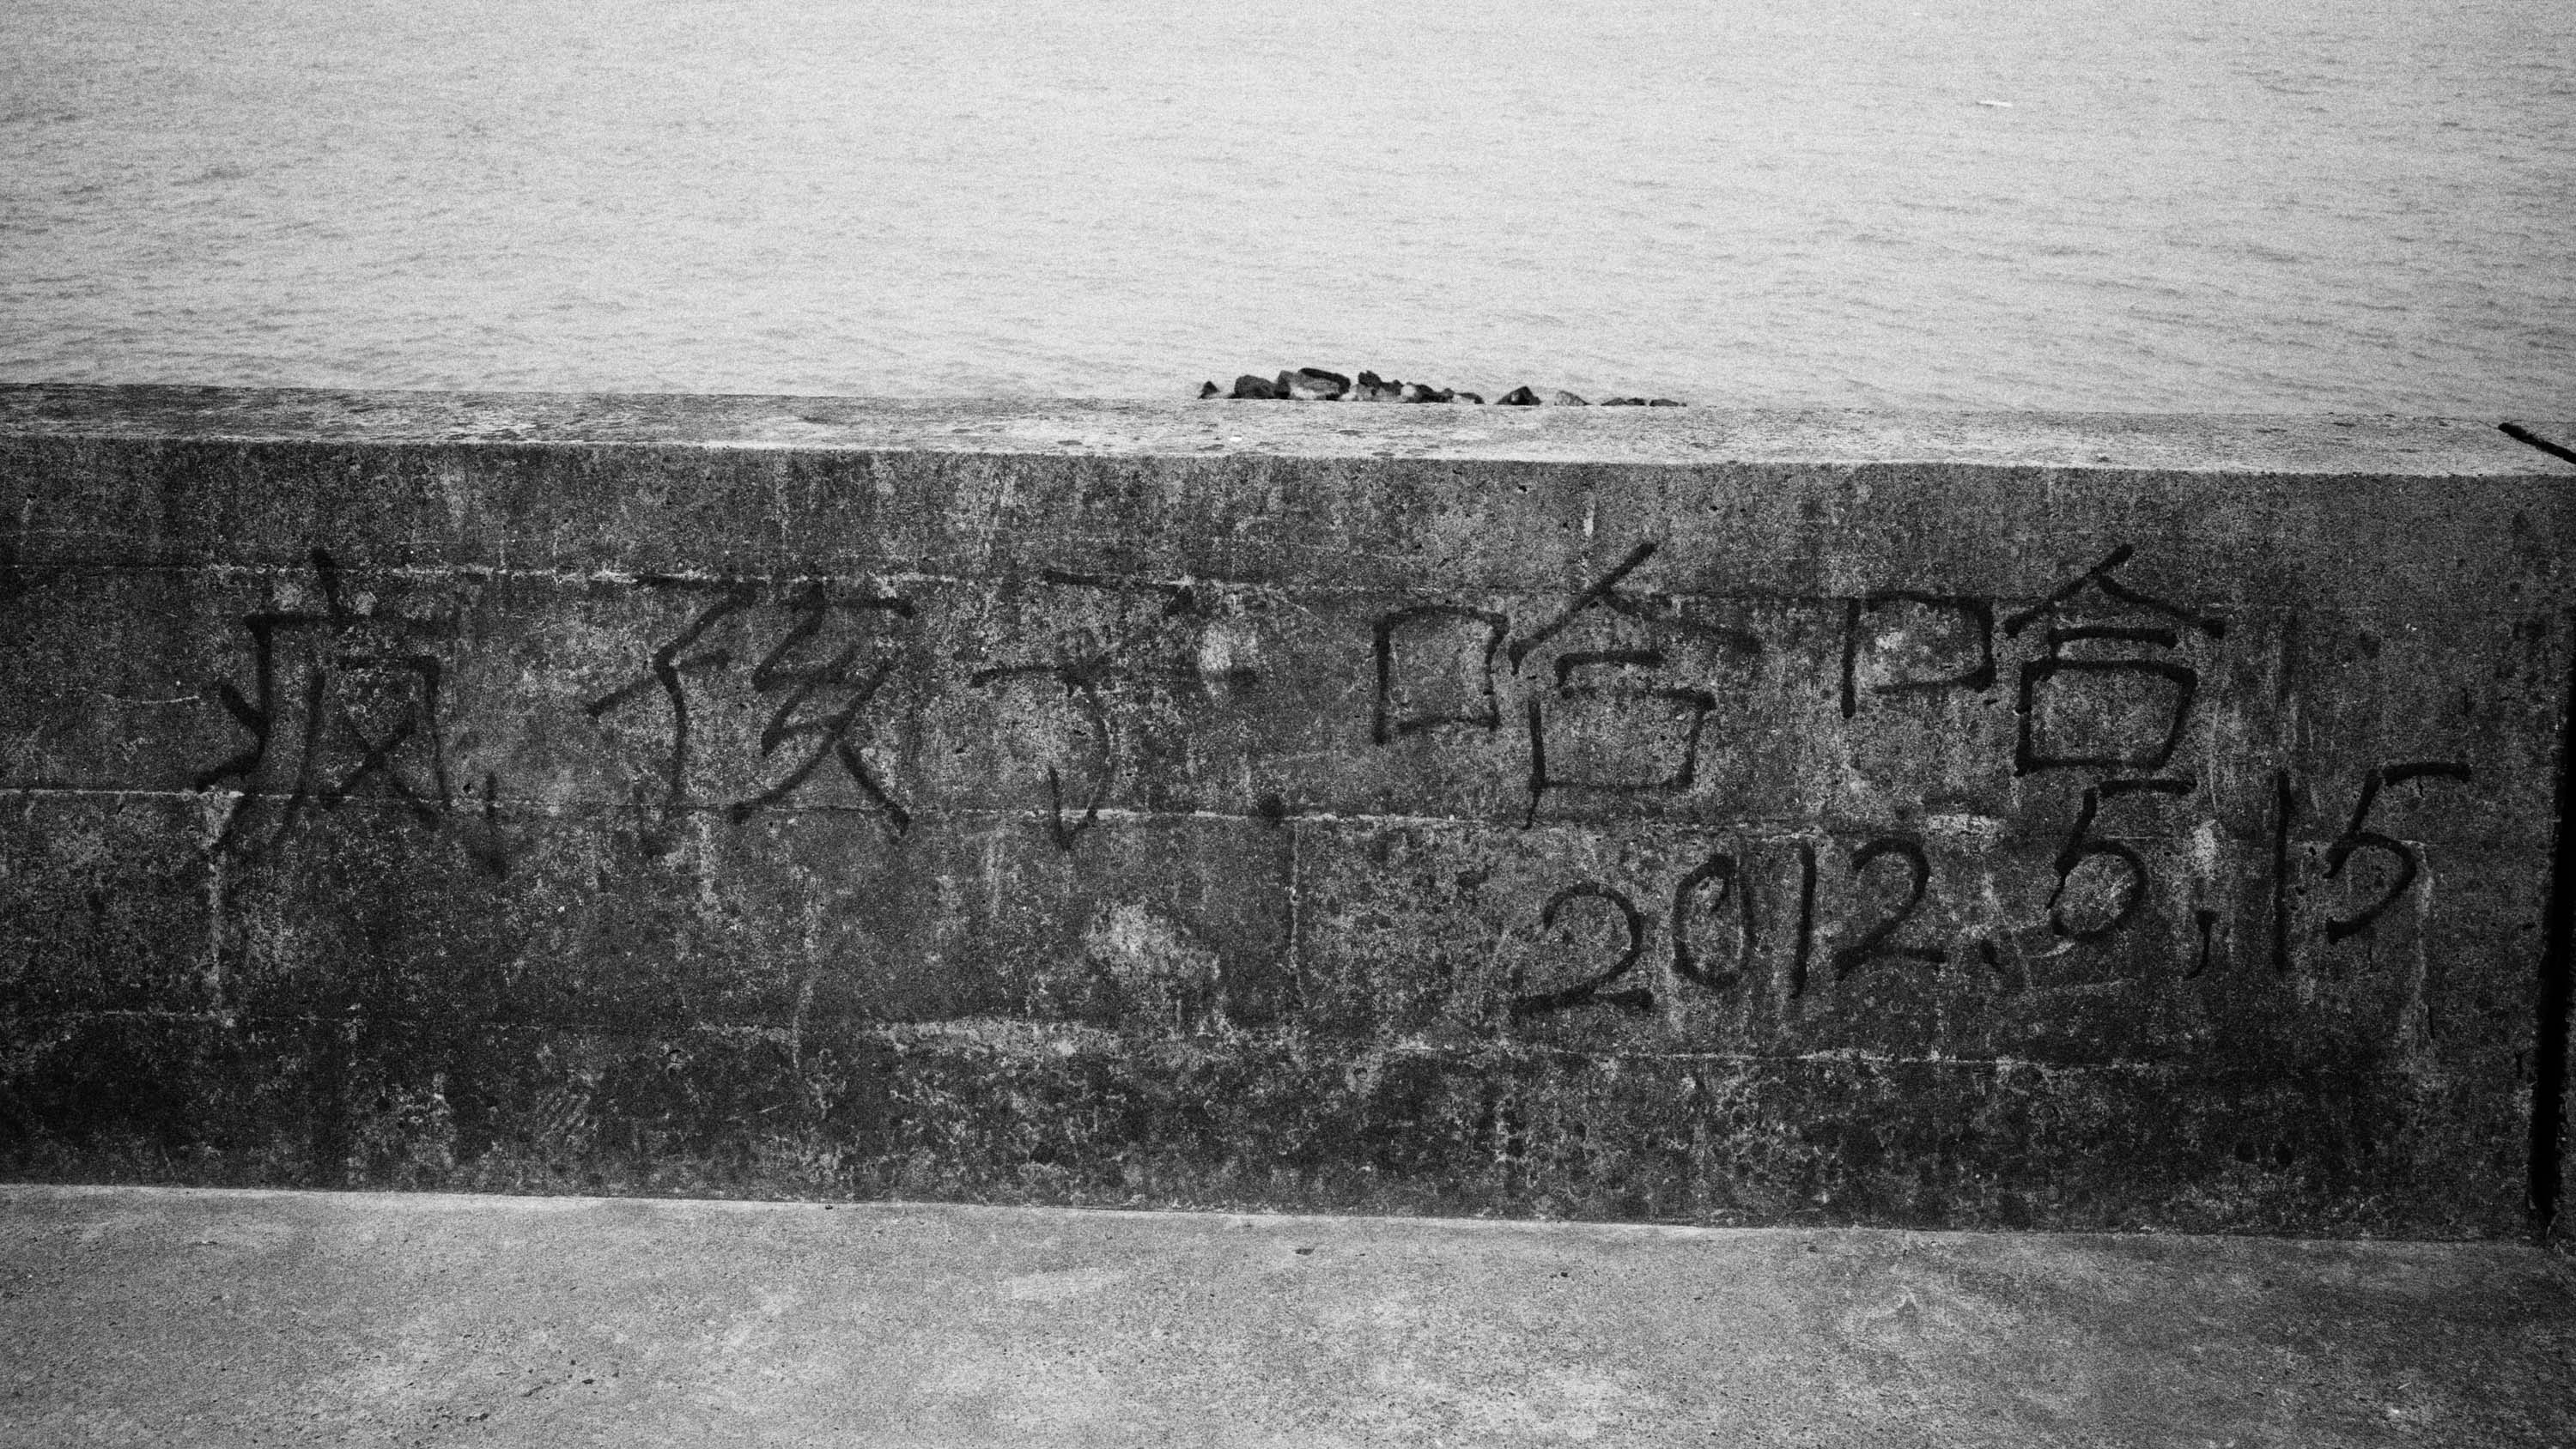 疯孩子哈哈
2012.5,15